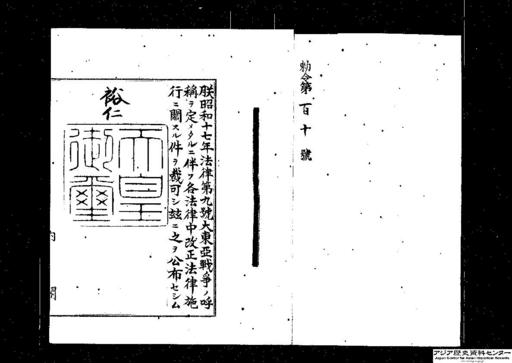 勅令第百十號
朕昭和十七年法律第九號大東亞戰爭ノ呼
稱ヲ定メタルニ伴フ各法律中改正法律施
行ニ關スル件ヲ裁可シ玆ニ之ヲ公布セシム
裕仁
天皇
御璽
内閣
アジア歴史資料センター
Japan Center for Asian Historical Records